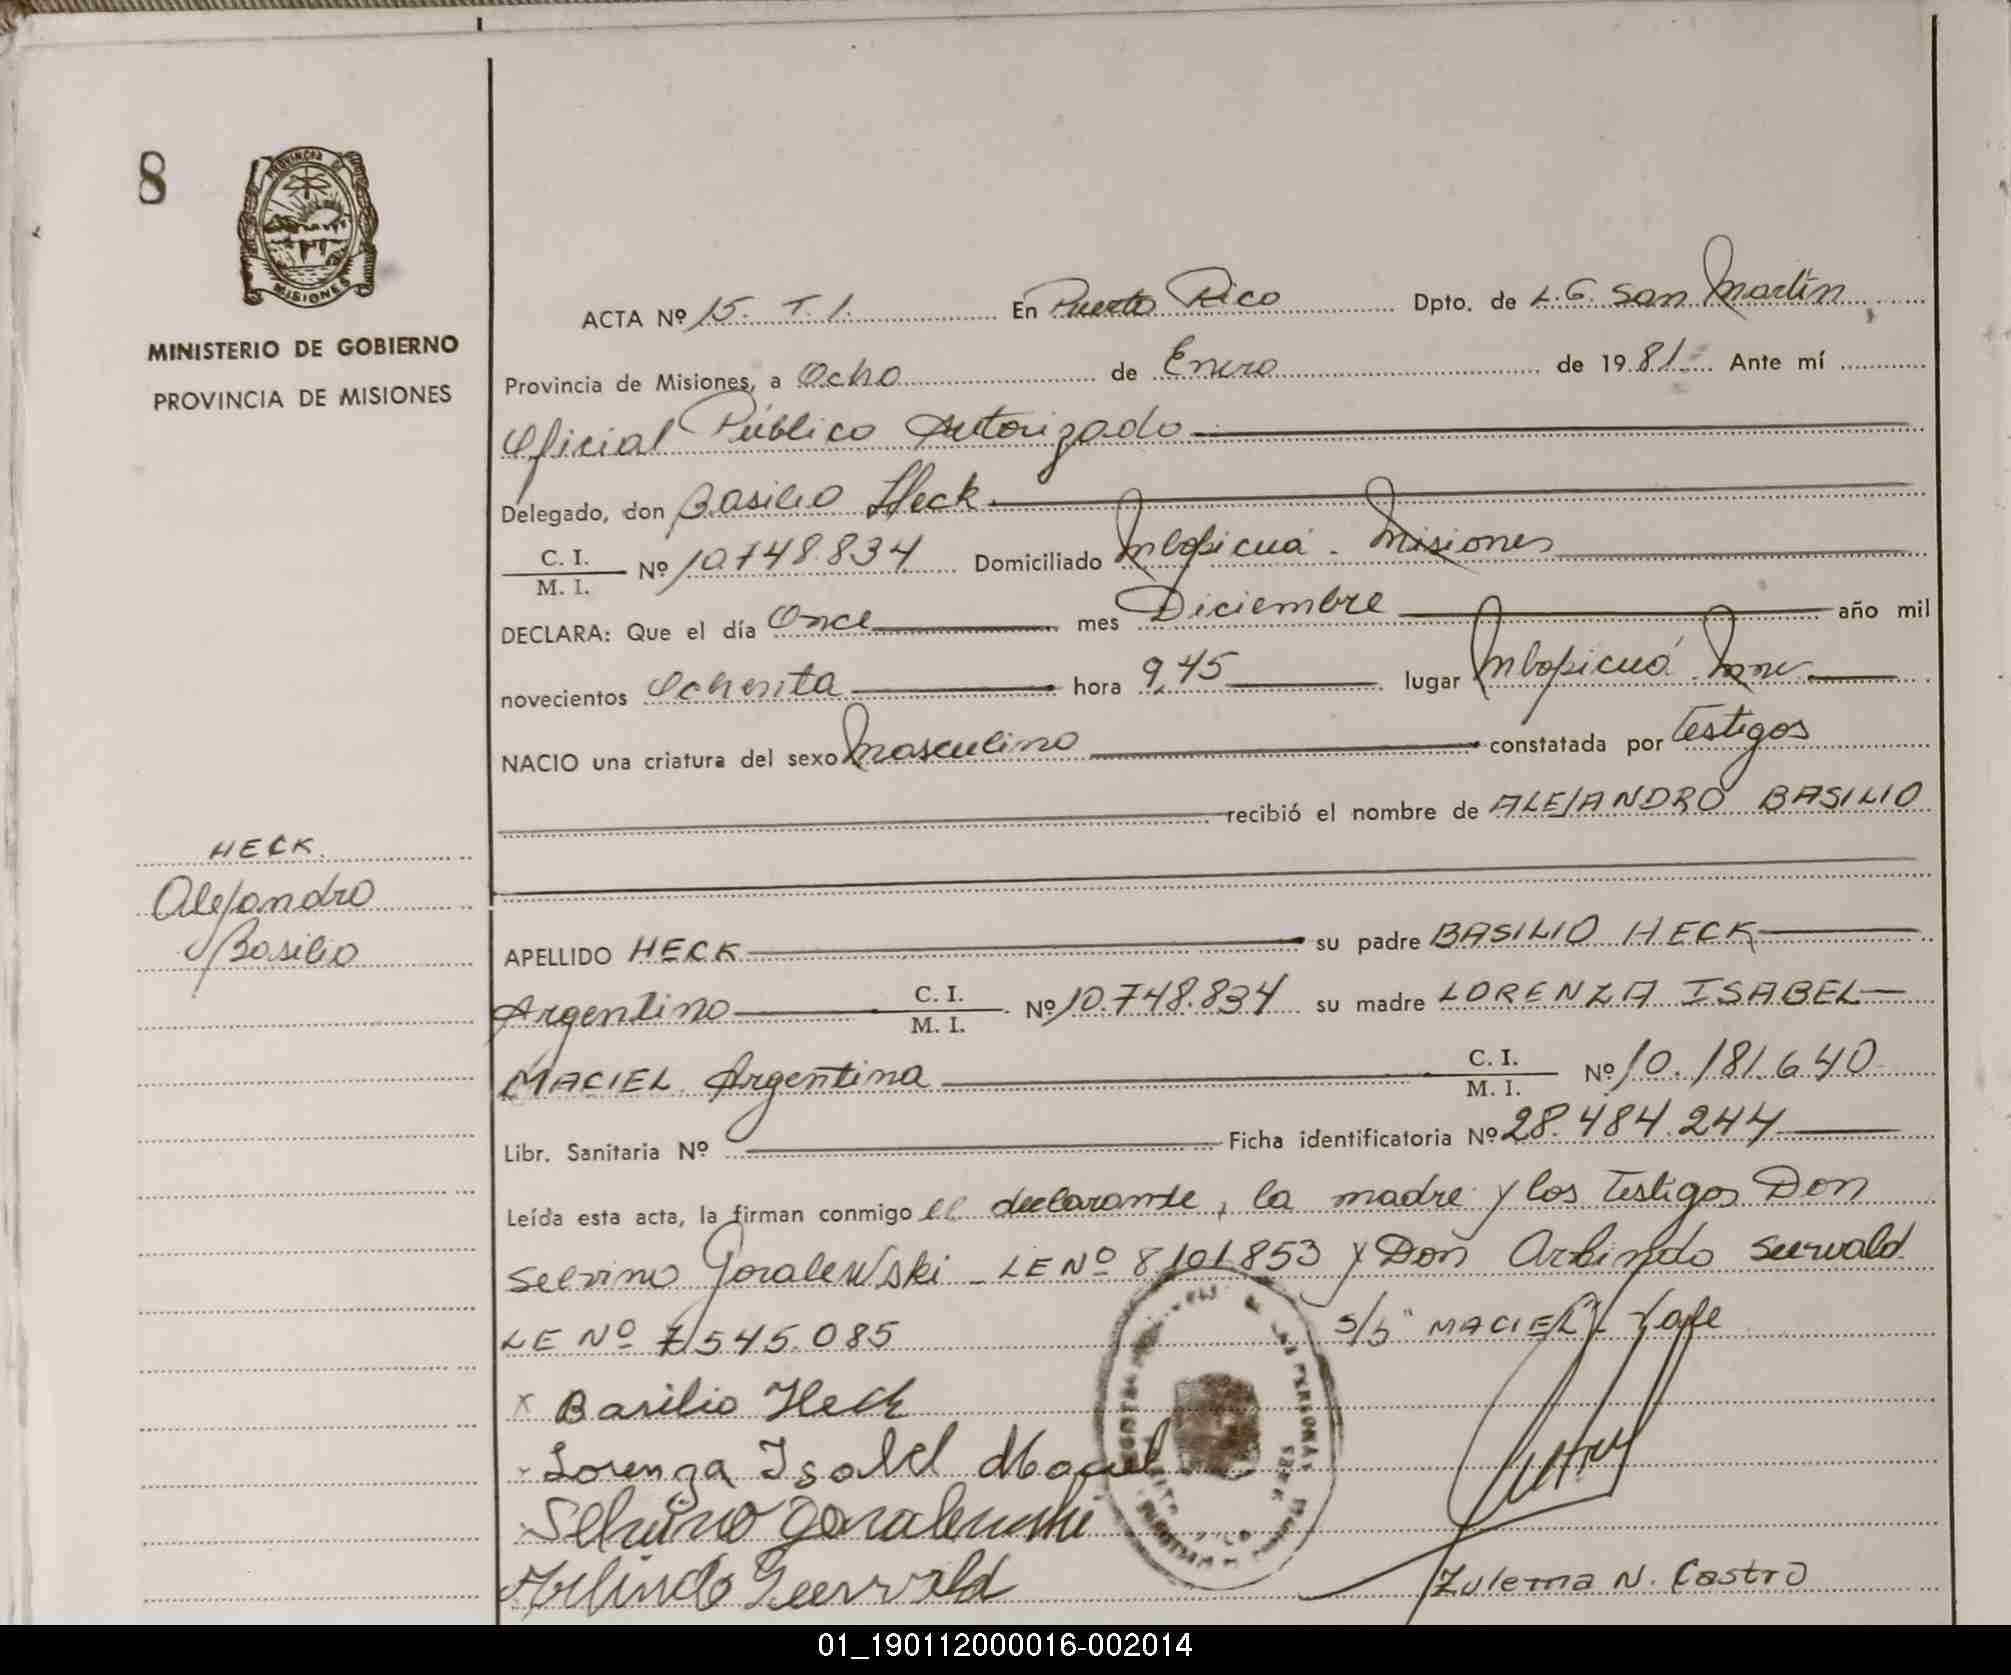 8
PROVINCIA DE
MISIONES
MINISTERIO DE GOBIERNO
PROVINCIA DE MISIONES
HECK.
Alejandro
Basilio
ACTA Nº 15. T. I. En Puerto Rico Dpto. de L.G. San Martín
Provincia de Misiones, a Ocho de Enero de 1981 Ante mí
Oficial Público Autorizado
Delegado, don Basilio Heck
C. I. / M. I. Nº 10.748.834 Domiciliado Mbopicuá - Misiones
DECLARA: Que el día Once mes Diciembre año mil
novecientos Ochenta hora 9,45 lugar Mbopicuá
NACIO una criatura del sexo Masculino constatada por Testigos
recibió el nombre de ALEJANDRO BASILIO
APELLIDO HECK su padre BASILIO HECK
Argentino C. I. / M. I. Nº 10.748.834 su madre LORENZA ISABEL
MACIEL Argentina C. I. / M. I. Nº 10.181.640
Libr. Sanitaria Nº Ficha identificatoria Nº 28.484.244
Leída esta acta, la firman conmigo el declarante, la madre y los Testigos Don
Selvino Goralewski - LE Nº 8101853 y Don Arlindo Seewald
LE Nº 7.545.085 S/b "MACIEL" Vale
x Basilio Heck
Lorenza Isabel Maciel
Selvino Goralewski
Arlindo Seewald
Zulema N. Castro
01_190112000016-002014